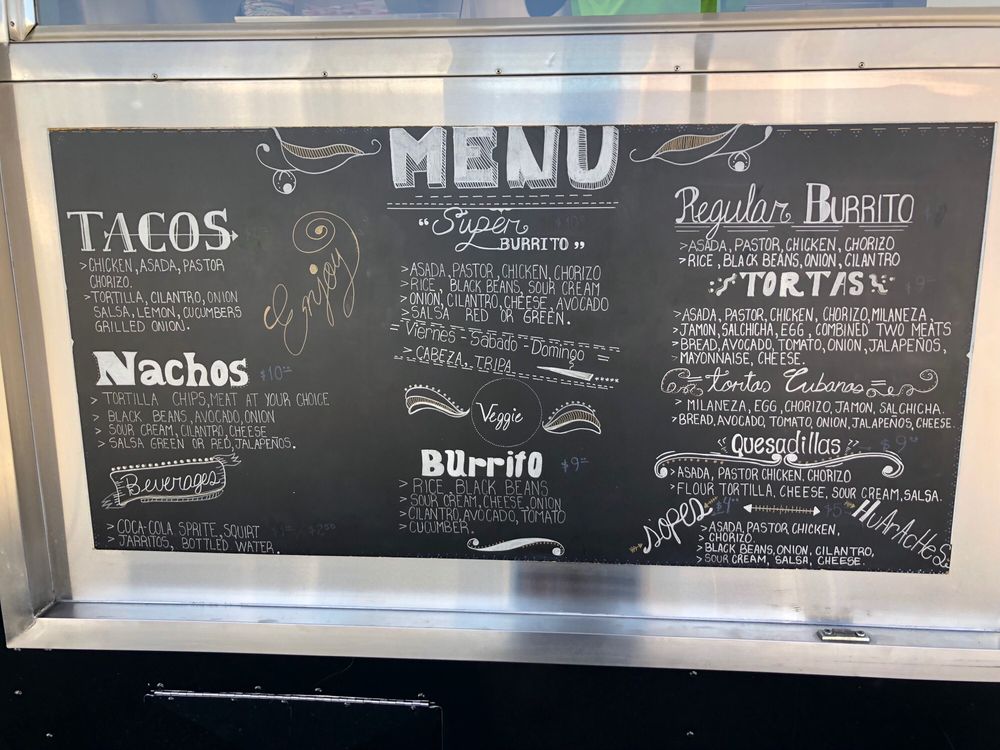 MENU
TACOS
>CHICKEN, ASADA, PASTOR
CHORIZO.
>TORTILLA, CILANTRO, ONION
SALSA, LEMON, CUCUMBERS
GRILLED ONION.
Enjoy
Nachos $10
> TORTILLA CHIPS, MEAT AT YOUR CHOICE
> BLACK BEANS, AVOCADO, ONION
> SOUR CREAM, CILANTRO, CHEESE
> SALSA GREEN OR RED, JALAPEÑOS.
Beverages
>COCA-COLA, SPRITE, SQUIRT
>JARRITOS, BOTTLED WATER.
"Super
BURRITO"
>ASADA, PASTOR, CHICKEN, CHORIZO
>RICE, BLACK BEANS, SOUR CREAM
>ONION, CILANTRO, CHEESE, AVOCADO
>SALSA RED OR GREEN.
Viernes - Sabado - Domingo
> CABEZA, TRIPA
Veggie
BUrrito $9
> RICE, BLACK BEANS
>SOUR CREAM, CHEESE, ONION
>CILANTRO, AVOCADO, TOMATO
>CUCUMBER.
Regular BURRITO
>ASADA, PASTOR, CHICKEN, CHORIZO
>RICE, BLACK BEANS, ONION, CILANTRO
TORTAS $9
>ASADA, PASTOR, CHICKEN, CHORIZO, MILANEZA,
>JAMON, SALCHICHA, EGG, COMBINED TWO MEATS
>BREAD, AVOCADO, TOMATO, ONION, JALAPEÑOS,
>MAYONNAISE, CHEESE.
Tortas Cubanas
> MILANEZA, EGG, CHORIZO, JAMON, SALCHICHA.
>BREAD, AVOCADO, TOMATO, ONION, JALAPEÑOS, CHEESE.
Quesadillas $9
>ASADA, PASTOR CHICKEN, CHORIZO
>FLOUR TORTILLA, CHEESE, SOUR CREAM, SALSA.
SOPES $4 $5 HUArAcHeS
>ASADA, PASTOR, CHICKEN,
> CHORIZO.
>BLACK BEANS, ONION, CILANTRO,
>SOUR CREAM, SALSA, CHEESE.